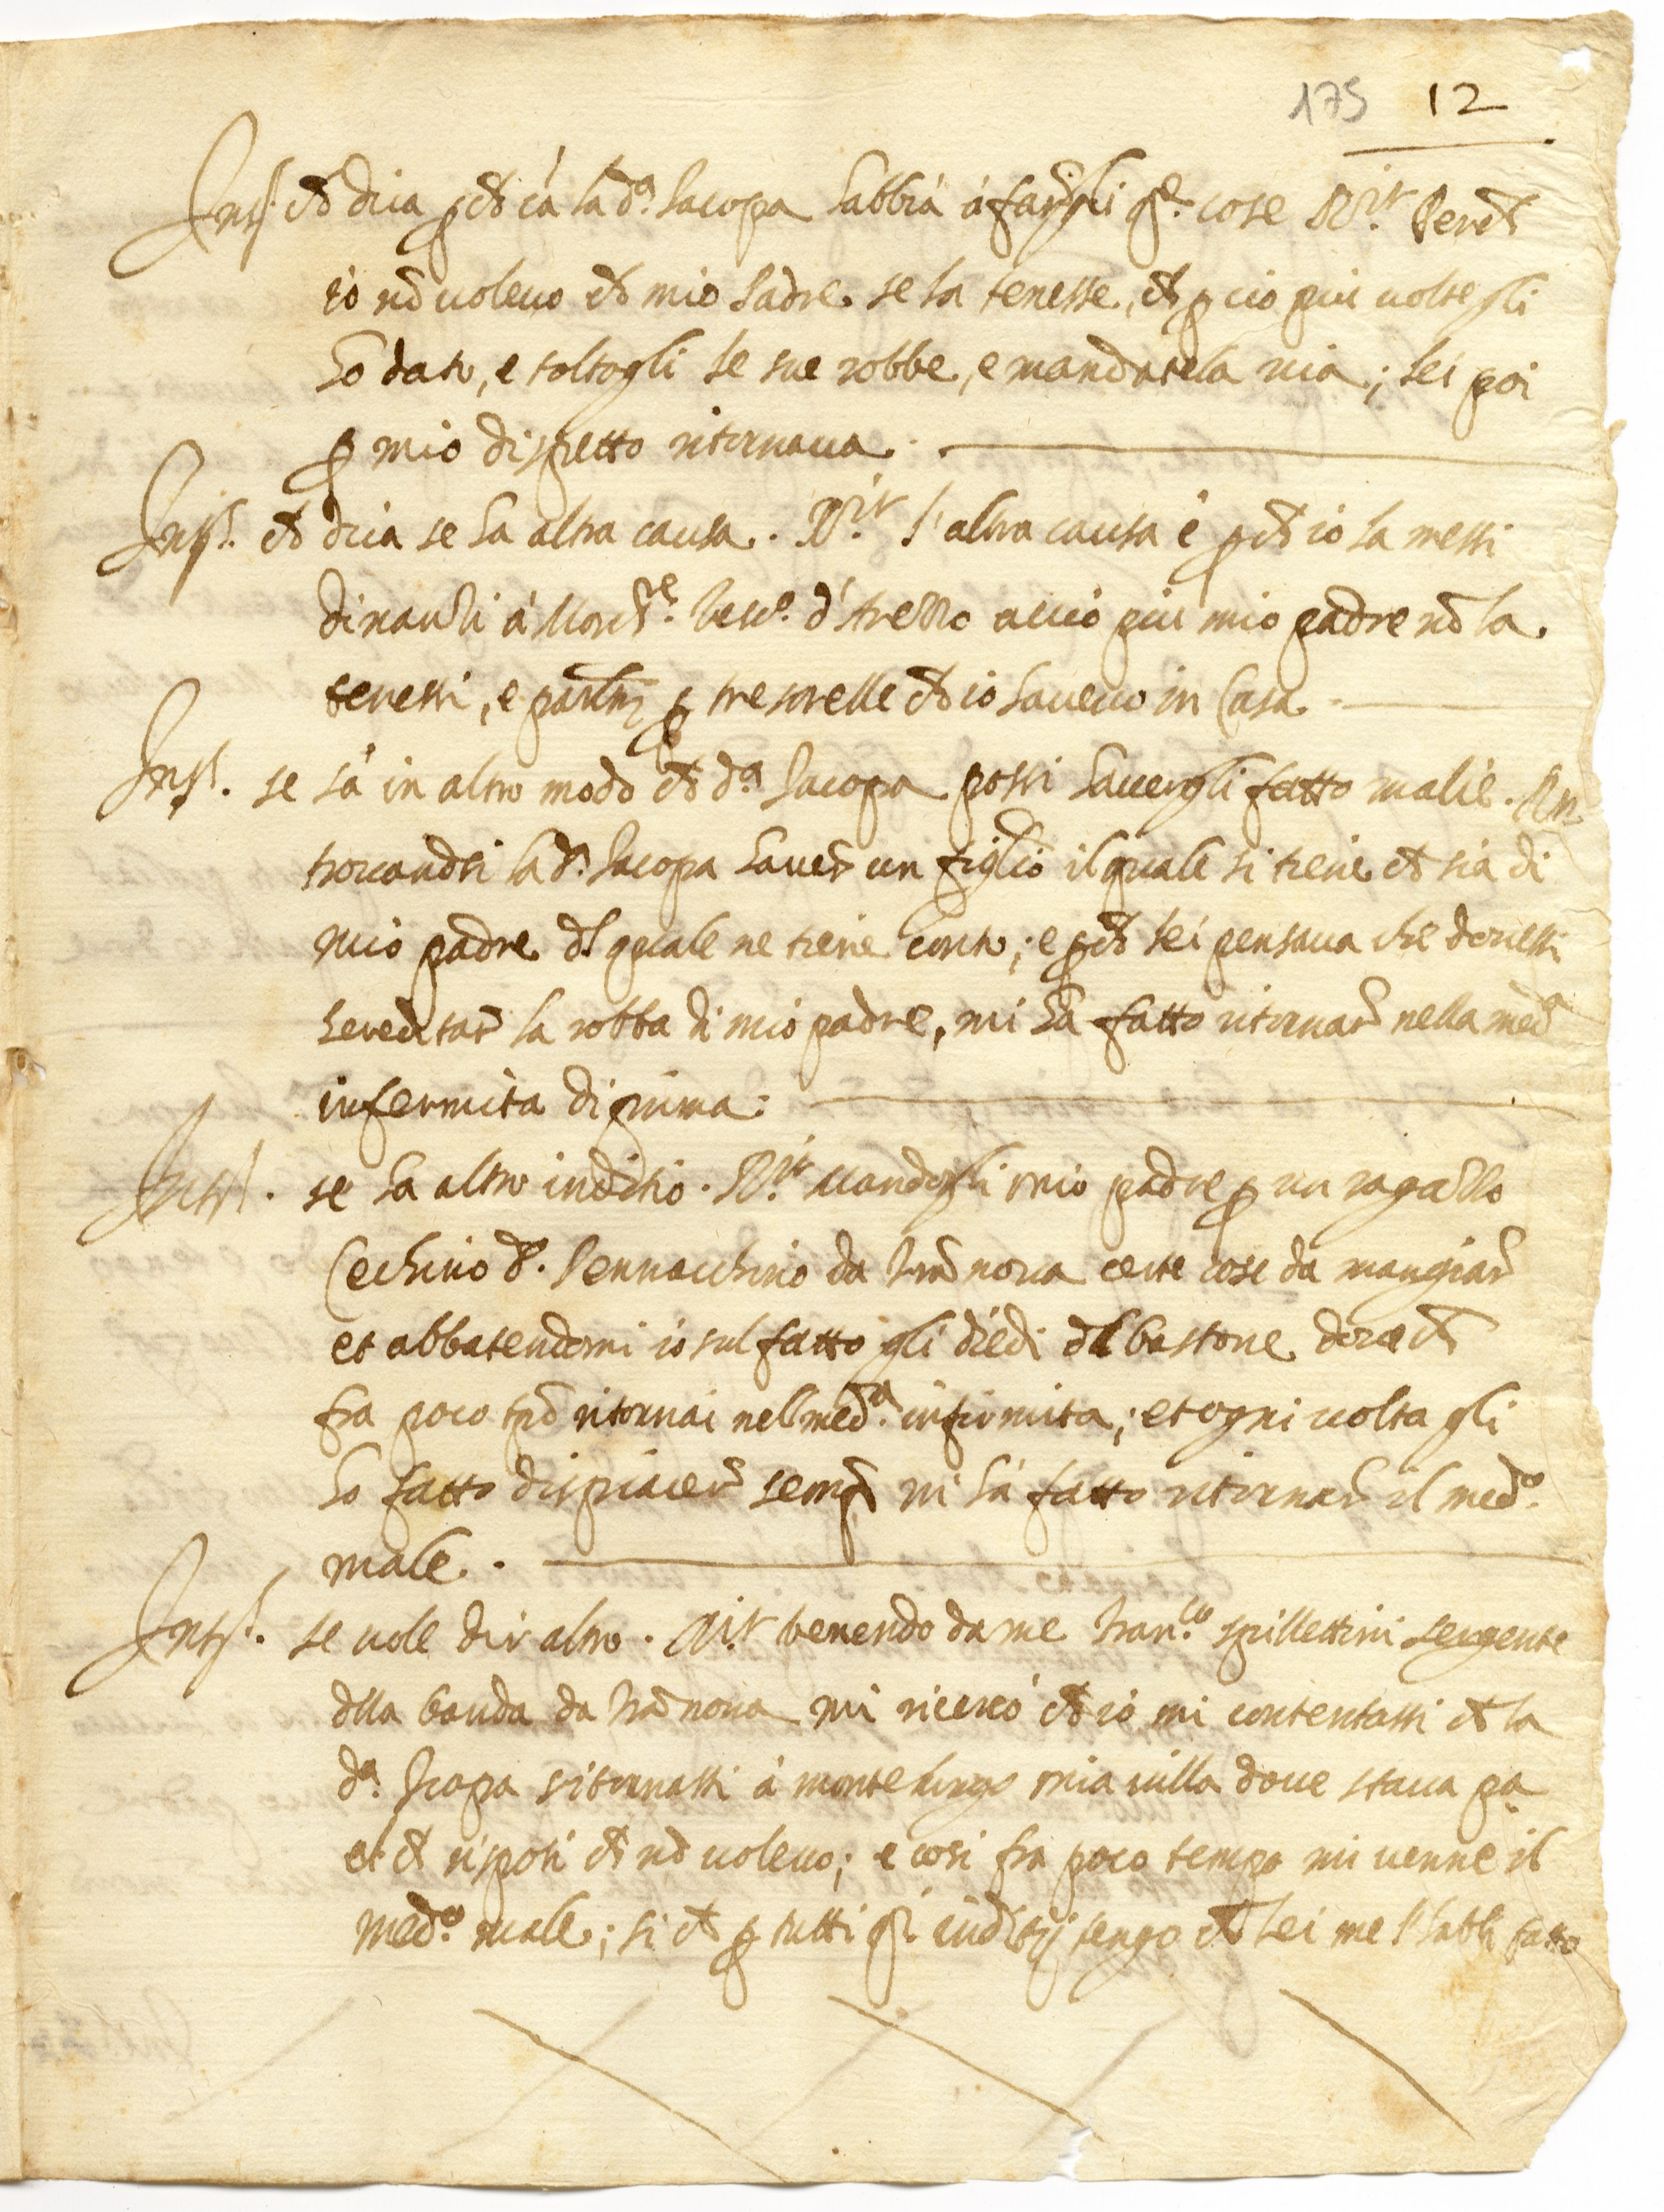 175 12
Int.s ch dica p ch cā la d.a Iacopa habbia à farrgli q.e cose R.it Perch
io nō volevo ch mio Padre se la tenesse, ch p ciò piu volte gli
ho dato, e toltogli le sue robbe, e mandatela via; lei poi
p mio dispetto ritornava.
Int.s ch dica se ha altra causa. R.it l'altra causa è p ch io la messi
dinanzi à Mons.re Vesc.o d'Arezzo acciò piu mio padre nō la
tenessi, e p tre sorelle ch io havevo in Casa
Int.s se sà in altro modo ch d.a Iacopa possi havergli fatto malie. Rit
trovandosi la d.a Iacopa haver un figlio il quale si tiene ch sia di
mio padre dl quale ne tiene conto; e p ch lei pensava che dovessi
hereditar la robba di mio padre, mi ha fatto ritornar nella med.a
infermita di prima.
Int.s se ha altro inditio. R.it Mandogli mio padre p un ragazzo
Cechino d. Pennacchino da Terrā nova certe cose da mangiar
et abbatendomi io sul fatto gli diedi dl bastone dove ch
fra poco tpō ritornai nell med.a infirmita; et ogni volta gli
ho fatto dispiacer semp mi hà fatto ritornar il med.o
male.
Int.s se vole dir altro. R.it venendo da me Fran.co spillettini sergente
dlla banda da Terrā nova mi ricercò ch io mi contentassi ch la
d.a Iacopa ritornassi à monte lungo mia villa dove stava pa.
et ch risposi ch nō volevo; e cosi fra poco tempo mi venne il
med.o male; si ch p tutti q.i inditij tengo ch lei me l'habbi fatto